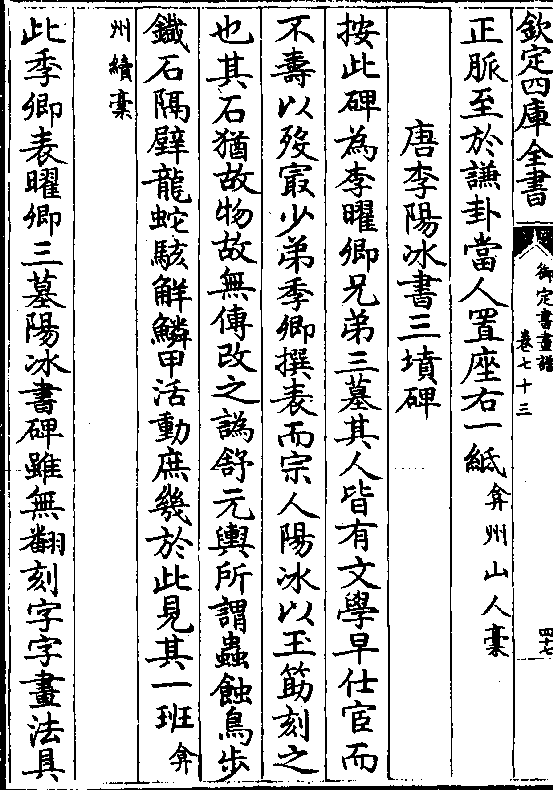 欽定四庫全書
御定書畫譜
卷七十三
四七
正脈至於謙卦當人置座右一紙弇州山人稾
唐李陽冰書三墳碑
按此碑為李曜卿兄弟三墓其人皆有文學早仕宦而
不壽以歿㝡少弟季卿撰表而宗人陽冰以玉筯刻之
也其石猶故物故無傳改之譌舒元輿所謂蟲蝕鳥步
鐵石隔壁龍蛇駭解鱗甲活動庶幾於此見其一班弇
州續稾
此季卿表曜卿三墓陽冰書碑雖無翻刻字字畫法具